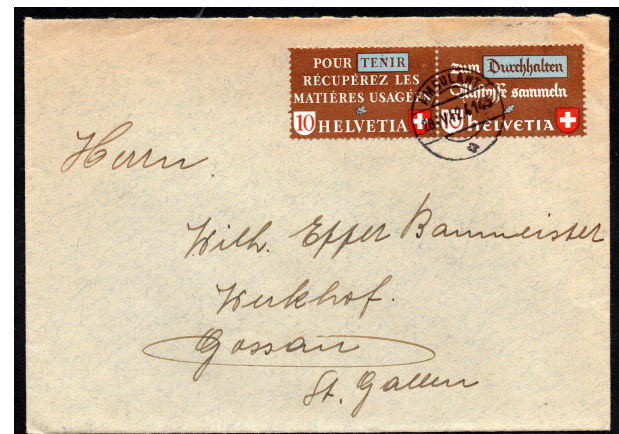 POUR TENIR
RÉCUPÉREZ LES
MATIÈRES USAGÉES
10 HELVETIA
Zum Durchhalten
Altstoffe sammeln
10 HELVETIA
AMBULANT
Herrn
Wilh. Epper Baumeister
Werkhof.
Gossau
St. Gallen